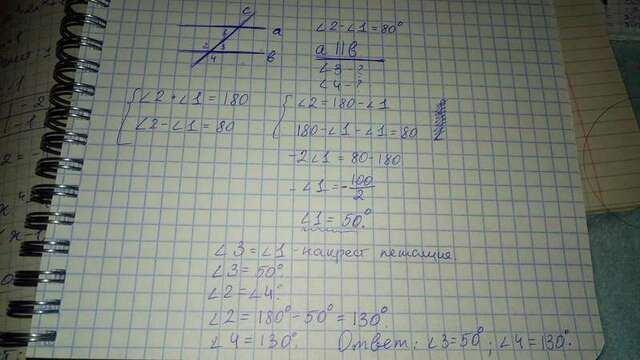 c
∠2-∠1=80°
1
a
2 3
a||в
в
4
∠3-?
∠4-?
∠2+∠1=180
∠2=180-∠1
∠2-∠1=80
180-∠1-∠1=80
-2∠1=80-180
-∠1=-100/2
∠1=50°.
∠3=∠1-накрест лежащие.
∠3=50°.
∠2=∠4.
∠2=180°-50°=130°.
∠4=130°. Ответ: ∠3=50°; ∠4=130°.